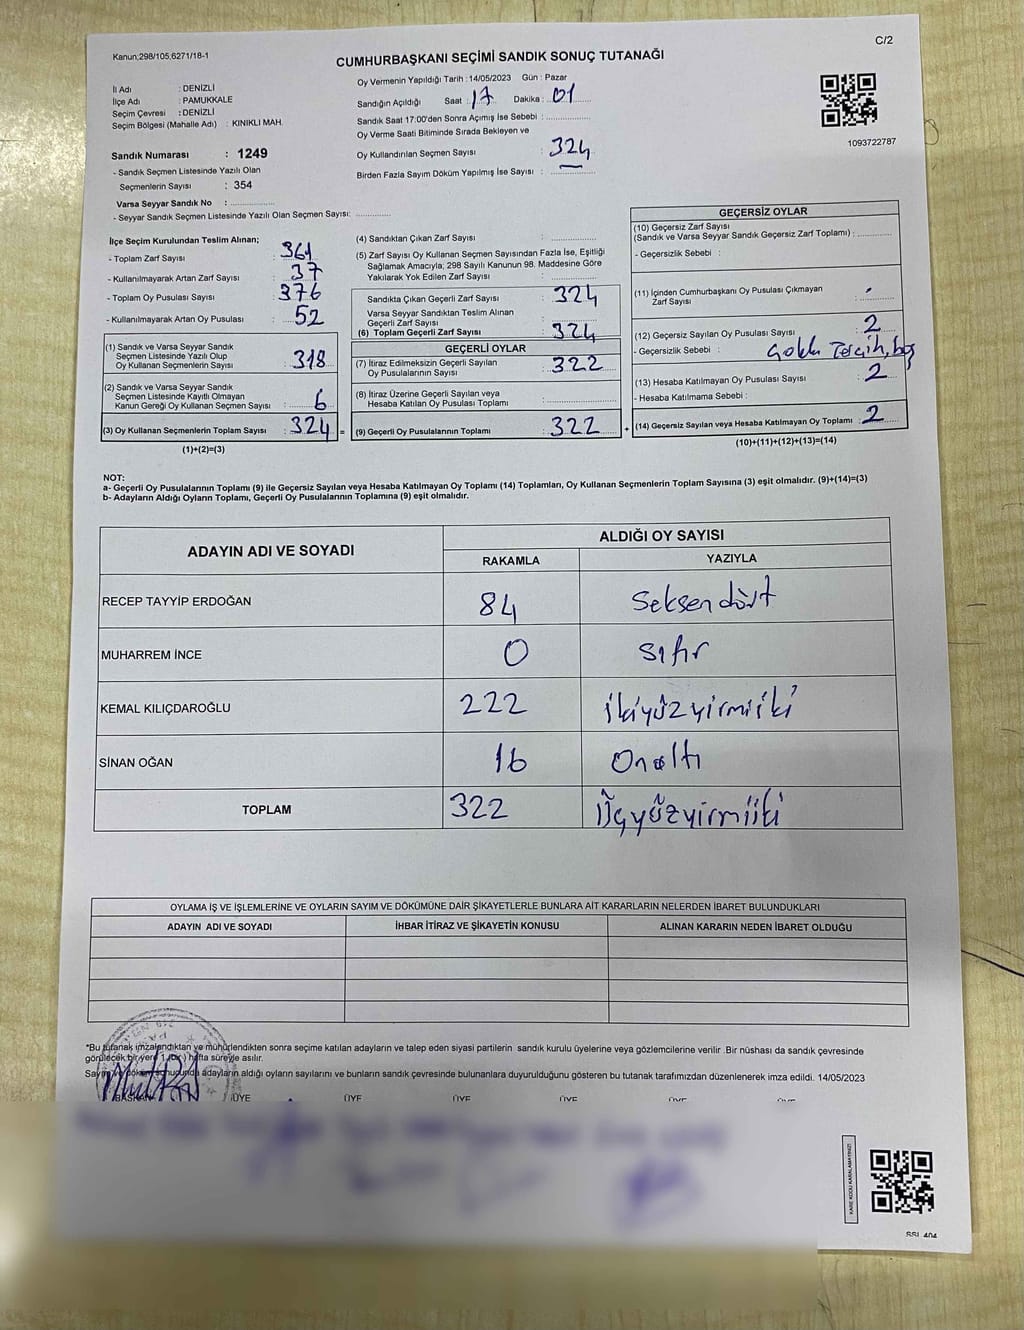 Kanun;298/105,6271/18-1
C/2
CUMHURBAŞKANI SEÇİMİ SANDIK SONUÇ TUTANAĞI
İl Adı : DENİZLİ
İlçe Adı : PAMUKKALE
Seçim Çevresi : DENİZLİ
Seçim Bölgesi (Mahalle Adı) : KINIKLI MAH.
Sandık Numarası : 1249
- Sandık Seçmen Listesinde Yazılı Olan
Seçmenlerin Sayısı : 354
Varsa Seyyar Sandık No : ................
- Seyyar Sandık Seçmen Listesinde Yazılı Olan Seçmen Sayısı: ............
Oy Vermenin Yapıldığı Tarih : 14/05/2023 Gün : Pazar
Sandığın Açıldığı Saat : 17 Dakika : 01
Sandık Saat 17:00'den Sonra Açımış İse Sebebi : ...............
Oy Verme Saati Bitiminde Sırada Bekleyen ve
Oy Kullandırılan Seçmen Sayısı : 324
Birden Fazla Sayım Döküm Yapılmış İse Sayısı : —
1093722787
İlçe Seçim Kurulundan Teslim Alınan;
- Toplam Zarf Sayısı : 361
- Kullanılmayarak Artan Zarf Sayısı : 37
- Toplam Oy Pusulası Sayısı : 376
- Kullanılmayarak Artan Oy Pusulası : 52
(1) Sandık ve Varsa Seyyar Sandık
Seçmen Listesinde Yazılı Olup
Oy Kullanan Seçmenlerin Sayısı : 318
(2) Sandık ve Varsa Seyyar Sandık
Seçmen Listesinde Kayıtlı Olmayan
Kanun Gereği Oy Kullanan Seçmen Sayısı : 6
(3) Oy Kullanan Seçmenlerin Toplam Sayısı : 324 =
(1)+(2)=(3)
(4) Sandıktan Çıkan Zarf Sayısı : ...............
(5) Zarf Sayısı Oy Kullanan Seçmen Sayısından Fazla İse, Eşitliği
Sağlamak Amacıyla; 298 Sayılı Kanunun 98. Maddesine Göre
Yakılarak Yok Edilen Zarf Sayısı : ...............
Sandıkta Çıkan Geçerli Zarf Sayısı : 324
Varsa Seyyar Sandıktan Teslim Alınan
Geçerli Zarf Sayısı : ...............
(6) Toplam Geçerli Zarf Sayısı : 324
GEÇERLİ OYLAR
(7) İtiraz Edilmeksizin Geçerli Sayılan
Oy Pusulalarının Sayısı : 322
(8) İtiraz Üzerine Geçerli Sayılan veya
Hesaba Katılan Oy Pusulası Toplamı : ...............
(9) Geçerli Oy Pusulalarının Toplamı : 322 +
GEÇERSİZ OYLAR
(10) Geçersiz Zarf Sayısı
(Sandık ve Varsa Seyyar Sandık Geçersiz Zarf Toplamı) : ............
- Geçersizlik Sebebi :
(11) İçinden Cumhurbaşkanı Oy Pusulası Çıkmayan
Zarf Sayısı : ............
(12) Geçersiz Sayılan Oy Pusulası Sayısı : 2
- Geçersizlik Sebebi : Çoklu Tercih, boş
(13) Hesaba Katılmayan Oy Pusulası Sayısı : 2
- Hesaba Katılmama Sebebi :
(14) Geçersiz Sayılan veya Hesaba Katılmayan Oy Toplamı : 2
(10)+(11)+(12)+(13)=(14)
NOT:
a- Geçerli Oy Pusulalarının Toplamı (9) ile Geçersiz Sayılan veya Hesaba Katılmayan Oy Toplamı (14) Toplamları, Oy Kullanan Seçmenlerin Toplam Sayısına (3) eşit olmalıdır. (9)+(14)=(3)
b- Adayların Aldığı Oyların Toplamı, Geçerli Oy Pusulalarının Toplamına (9) eşit olmalıdır.
ADAYIN ADI VE SOYADI
ALDIĞI OY SAYISI
RAKAMLA YAZIYLA
RECEP TAYYİP ERDOĞAN 84 Seksen dört
MUHARREM İNCE 0 sıfır
KEMAL KILIÇDAROĞLU 222 ikiyüzyirmiiki
SİNAN OĞAN 16 Onaltı
TOPLAM 322 Üçyüzyirmiiki
OYLAMA İŞ VE İŞLEMLERİNE VE OYLARIN SAYIM VE DÖKÜMÜNE DAİR ŞİKAYETLERLE BUNLARA AİT KARARLARIN NELERDEN İBARET BULUNDUKLARI
ADAYIN ADI VE SOYADI İHBAR İTİRAZ VE ŞİKAYETİN KONUSU ALINAN KARARIN NEDEN İBARET OLDUĞU
*Bu tutanak imzalandıktan ve mühürlendikten sonra seçime katılan adayların ve talep eden siyasi partilerin sandık kurulu üyelerine veya gözlemcilerine verilir .Bir nüshası da sandık çevresinde
görülecek bir yere 1 (bir) hafta süreyle asılır.
Sayım ve döküm sonucunda adayların aldığı oyların sayılarını ve bunların sandık çevresinde bulunanlara duyurulduğunu gösteren bu tutanak tarafımızdan düzenlenerek imza edildi. 14/05/2023
BAŞKAN ÜYE ÜYE ÜYE ÜYE ÜYE ÜYE
KARE KODU KARALAMAYINIZ!